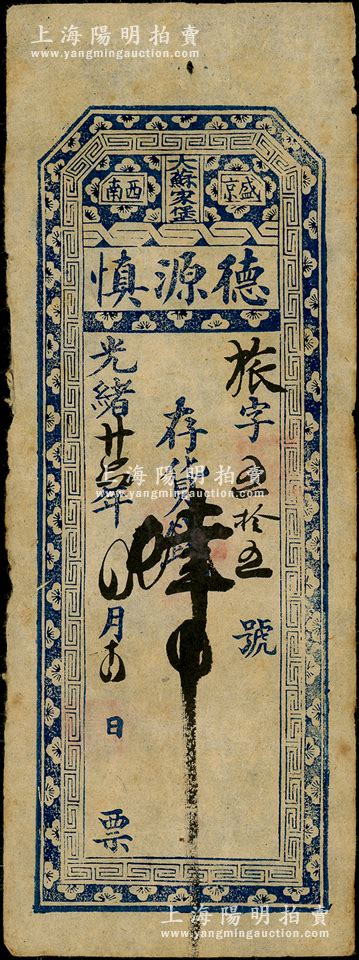 上海陽明拍賣
www.yangmingauction.com
盛京
大蘇家堡
西南
德源慎
旅字五拾五號
存
陸
光緒廿年月日
票
上海陽明拍賣
www.yangmingauction.com
上海陽明拍賣
www.yangmingauction.com